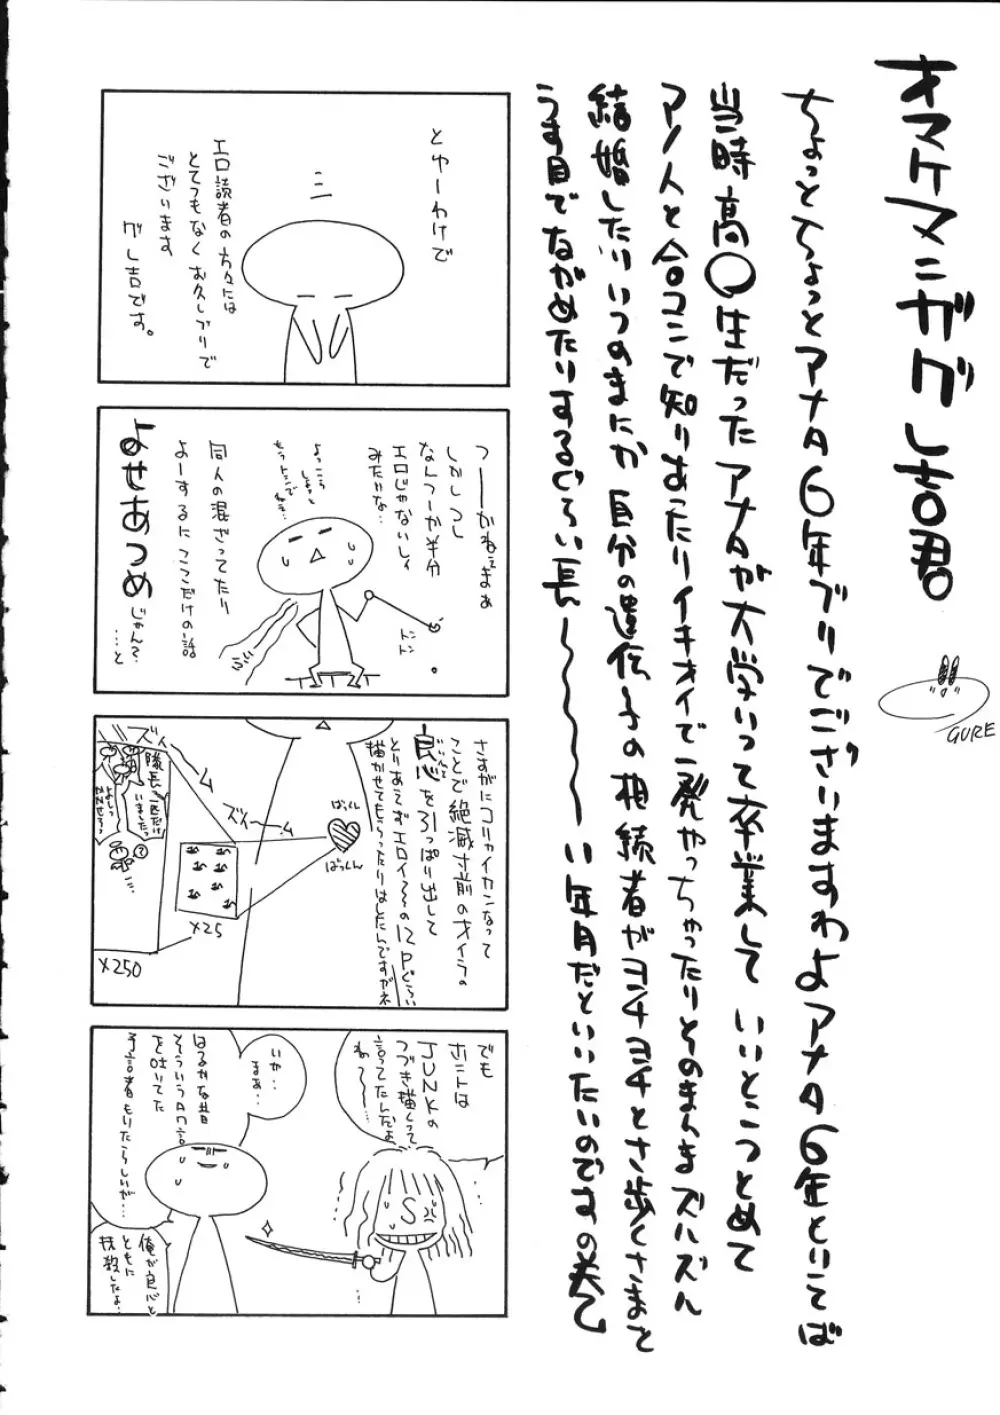 オマケマンガグレ吉君
ちょっとちょっとアナタ6年ブリでございますわよアナタ6年といてば
当時高○生だったアナタが大学いって卒業していいとこつとめて
アノ人と合コンで知りあったりイキオイで一発やっちゃったりそのまんまズルズル
結婚したりいつのまにか自分の遺伝子の相続者がヨチヨチとさ歩くさまを
うす目でながめたりするぐらい長〜〜〜い年月だといいたいのですの美乙
GURE
とゆーわけで
エロ読者の方々には
とてつもなくお久しブリで
ございます
グレ吉です。
つーかねぇまぁ
しかしつし
なんつーか半分
エロじゃないしィ
みたいな…
よっこら
しょっと
もうトシで
ねぇ…
ドン
ドン
同人の混ざってたり
よーするにここだけの話
よせあつめ
じゃん?
…と
さすがにコリャイカンなって
ことで絶滅寸前のオイラの
良心を引っぱり出して
とりあえずエロイ〜の12Pぐらい
描かせてもらったりはしたんですがネ
ばっくん
ばっくん
ズイーム
ズイーム
×25
×250
隊長一匹だけ
いましたっ
でも
ホントは
JUNKの
つづき描くって
言ってたんだよ
ね〜〜…
いや…
まぁ…
はるかな昔
そういうたわ言
を吐いてた
予言者もいたらしいが…
俺が良心と
ともに
抹殺したよ…